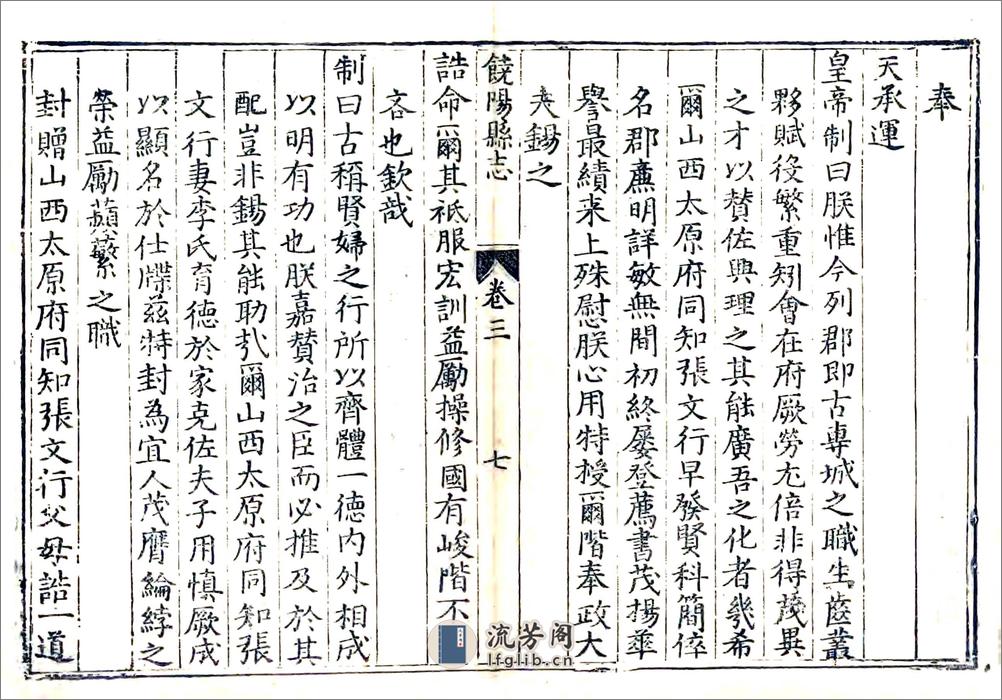 奉
天承運
皇帝制曰朕惟今列郡即古專城之職生齒叢
夥賦役繁重矧會在府厥勞尤倍非得茂異
之才以贊佐興理之其能廣吾之化者幾希
爾山西太原府同知張文行早發賢科簡倅
名郡廉明詳敏無間初終屡登薦書茂揚華
譽最績来上殊慰朕心用特授爾階奉政大
夫錫之
饒陽縣志
卷三
七
誥命爾其祗服宏訓益勵操修國有峻階不
吝也欽哉
制曰古稱賢婦之行所以齊體一德内外相成
以明有功也朕嘉贊治之臣而必推及於其
配豈非錫其能助扎爾山西太原府同知張
文行妻李氏育德於家克佐夫子用慎厥成
以顯名於仕牒茲特封為宜人茂膺綸綍之
榮益勵蘋蘩之職
封贈山西太原府同知張文行父母誥一道
流芳阁
lfglib.cn